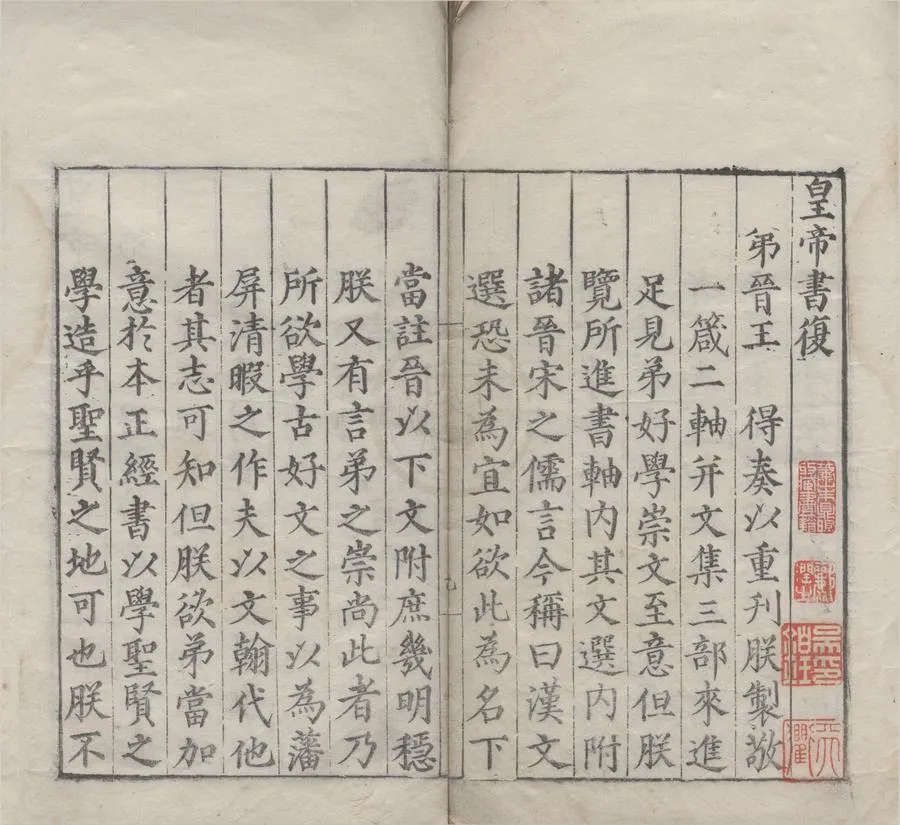 皇帝書復
弟晉王　得奏以重刊朕製敬
一箴二軸并文集三部來進
足見弟好學崇文至意但朕
覽所進書軸內其文選內附
諸晉宋之儒言今稱曰漢文
選恐未為宜如欲此為名下
當註晉以下文附庶幾明穩
朕又有言弟之崇尚此者乃
所欲學古好文之事以為藩
屏清暇之作夫以文翰代他
者其志可知但朕欲弟當加
意於本正經書以學聖賢之
學造乎聖賢之地可也朕不